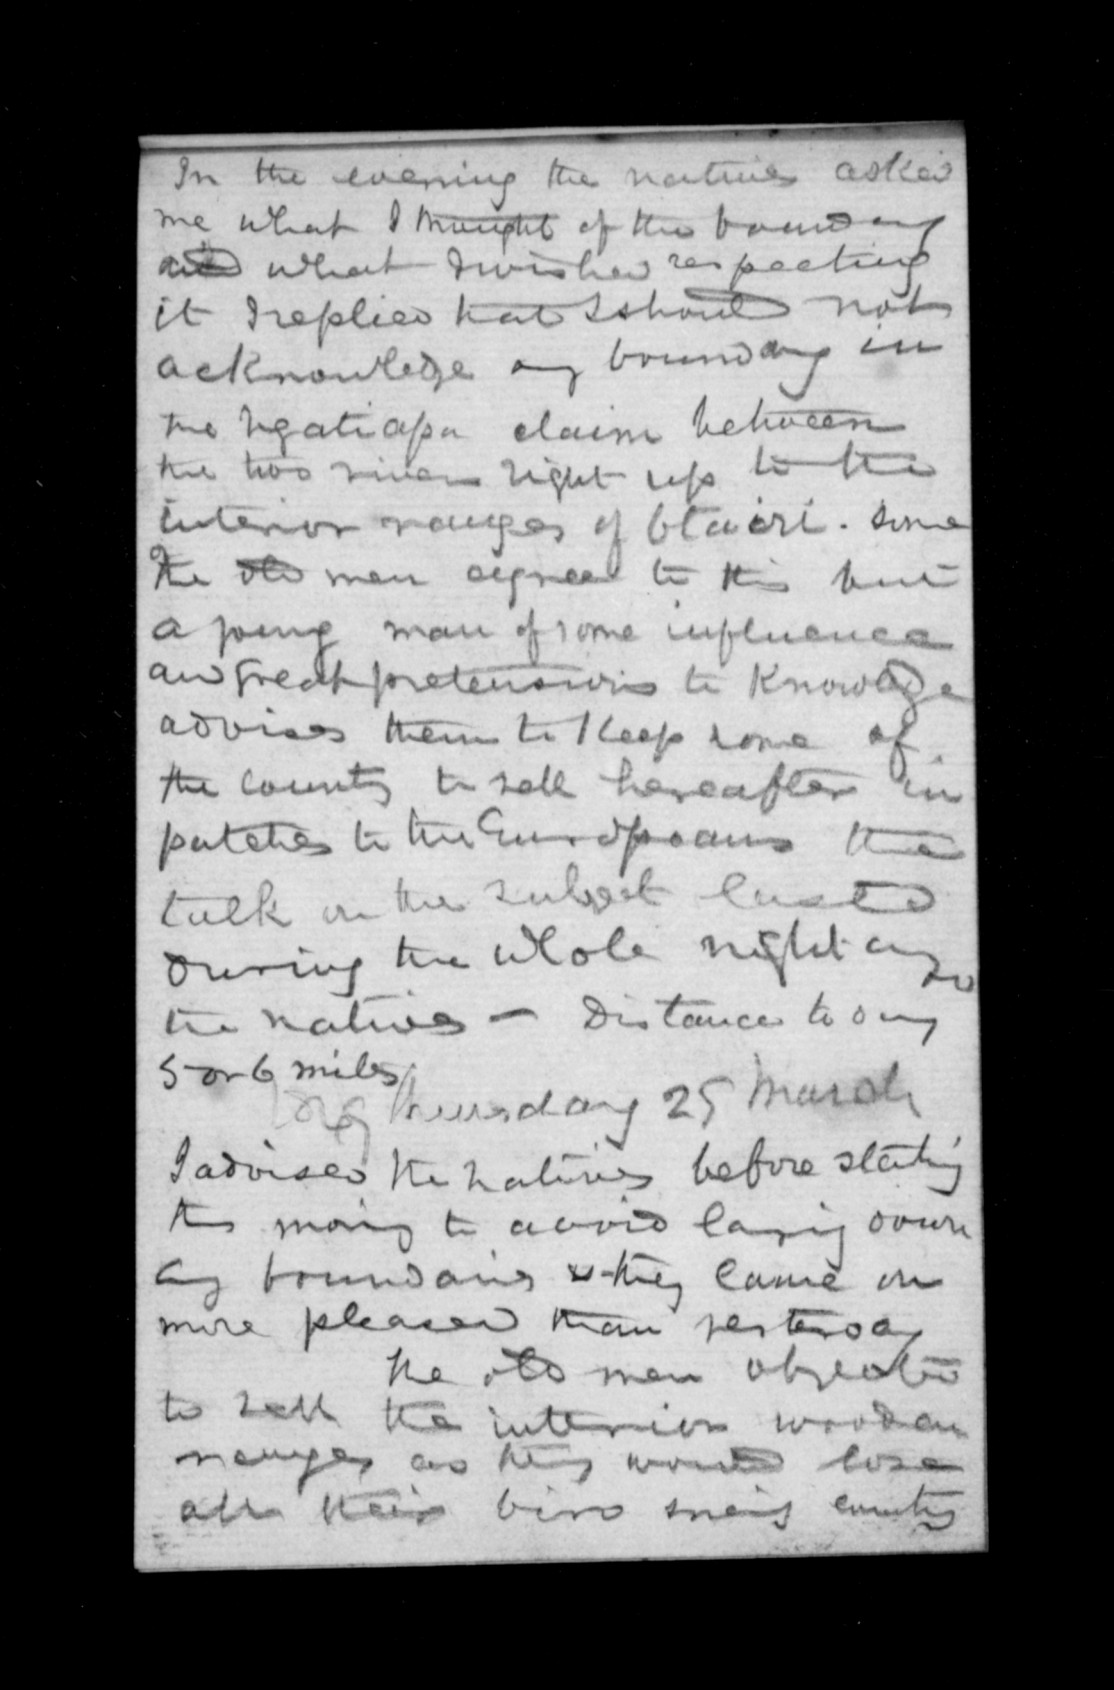 In the evening the natives asked
me what I thought of the boundary
and what I wished respecting
it I replied that I should not
acknowledge any boundary in
the Ngatiapa claim between
the two rivers right up to the
interior ranges of Otairi. Some
The old men agreed to this but
a young man of some influence
and great pretensions to Knowledge
advises them to Keep some of
the country to sell hereafter in
patches to the Europeans the
talk on the subject lasted
during the whole night
the natives – Distance to day
5 or 6 miles
Thursday 25 March
I advised the natives before starting
this morning to avoid laying down
any boundaries & they came on
more pleased than yesterday
The old men objected
to sell the interior wooden
ranges as they would lose
all their bird snaring country